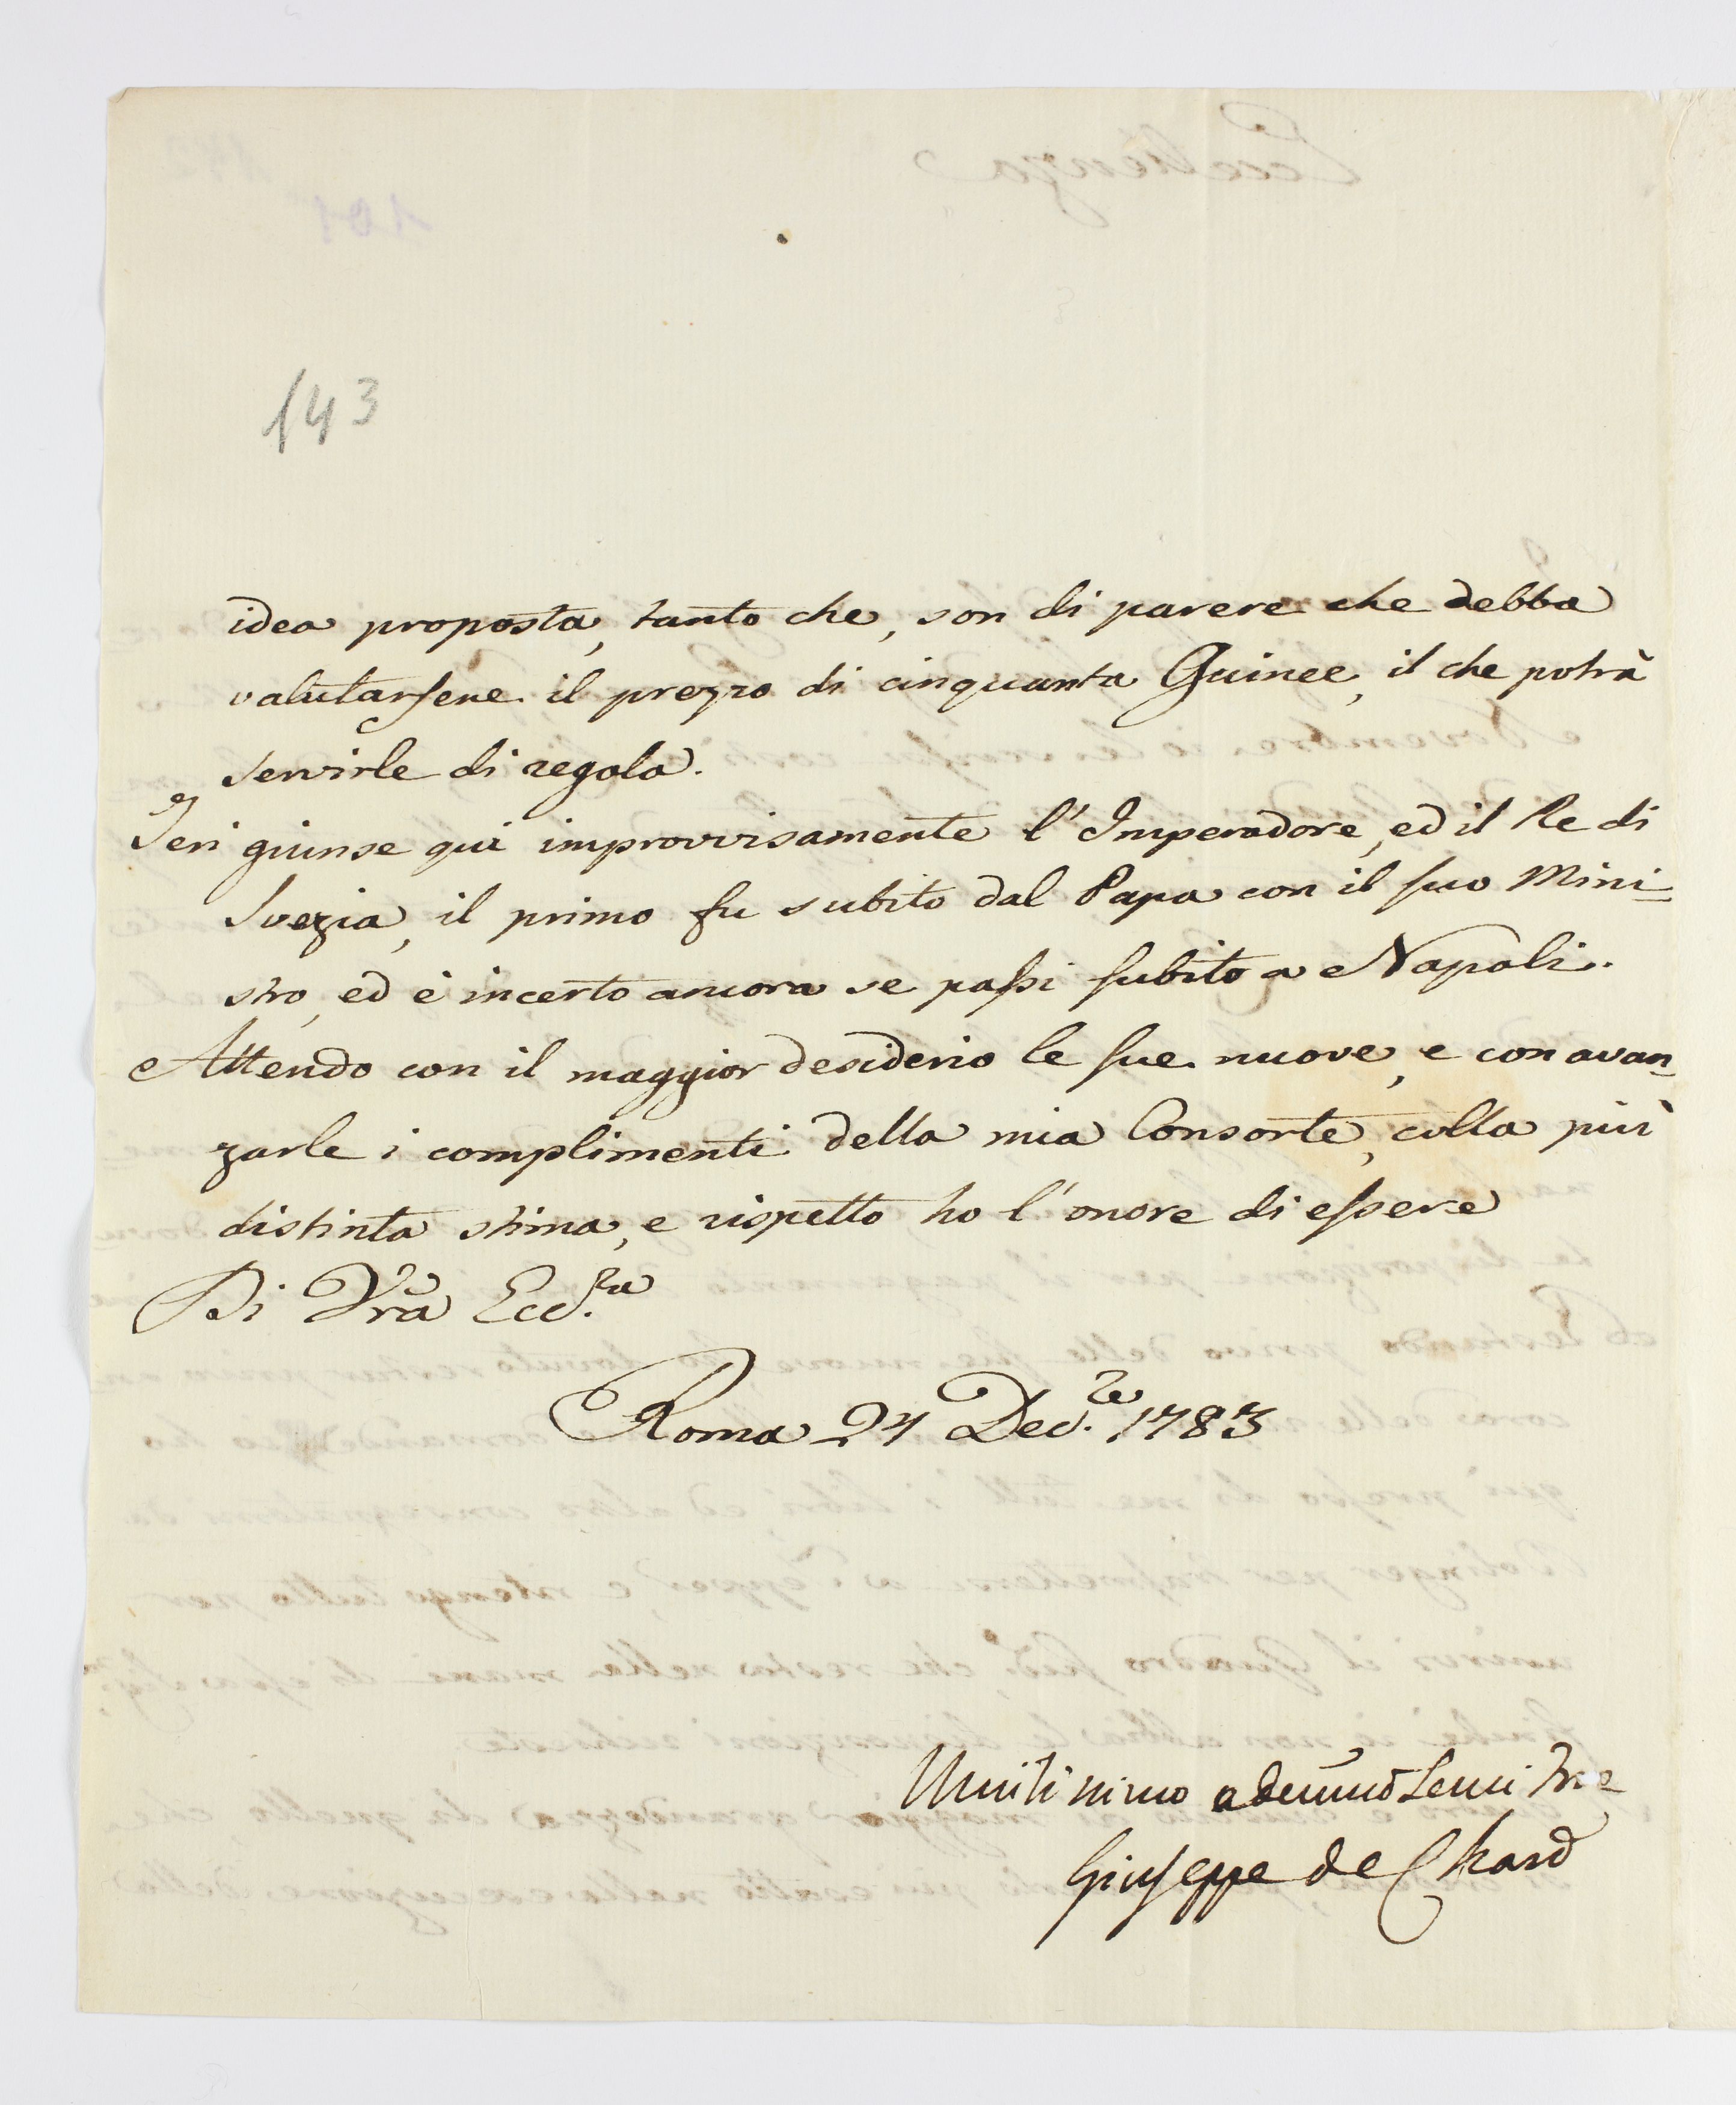 143
idea proposta, tanto che, son di parere che debba
valutarsene il prezzo di cinquanta Guinee, il che potrà
servirle di regola.
Jeri giunse qui improvvisamente l'Imperadore, ed il Re di
Svezia, il primo fu subito dal Papa con il suo Mini-
stro, ed è incerto ancora se passi subito a Napoli.
Attendo con il maggior desiderio le sue nuove, e con avan-
zarle i complimenti della mia Consorte, colla più
distinta stima, e rispetto ho l'onore di essere
Di Vrã Ecc.za
Roma 24 Dec.re 1783
Giuseppe de